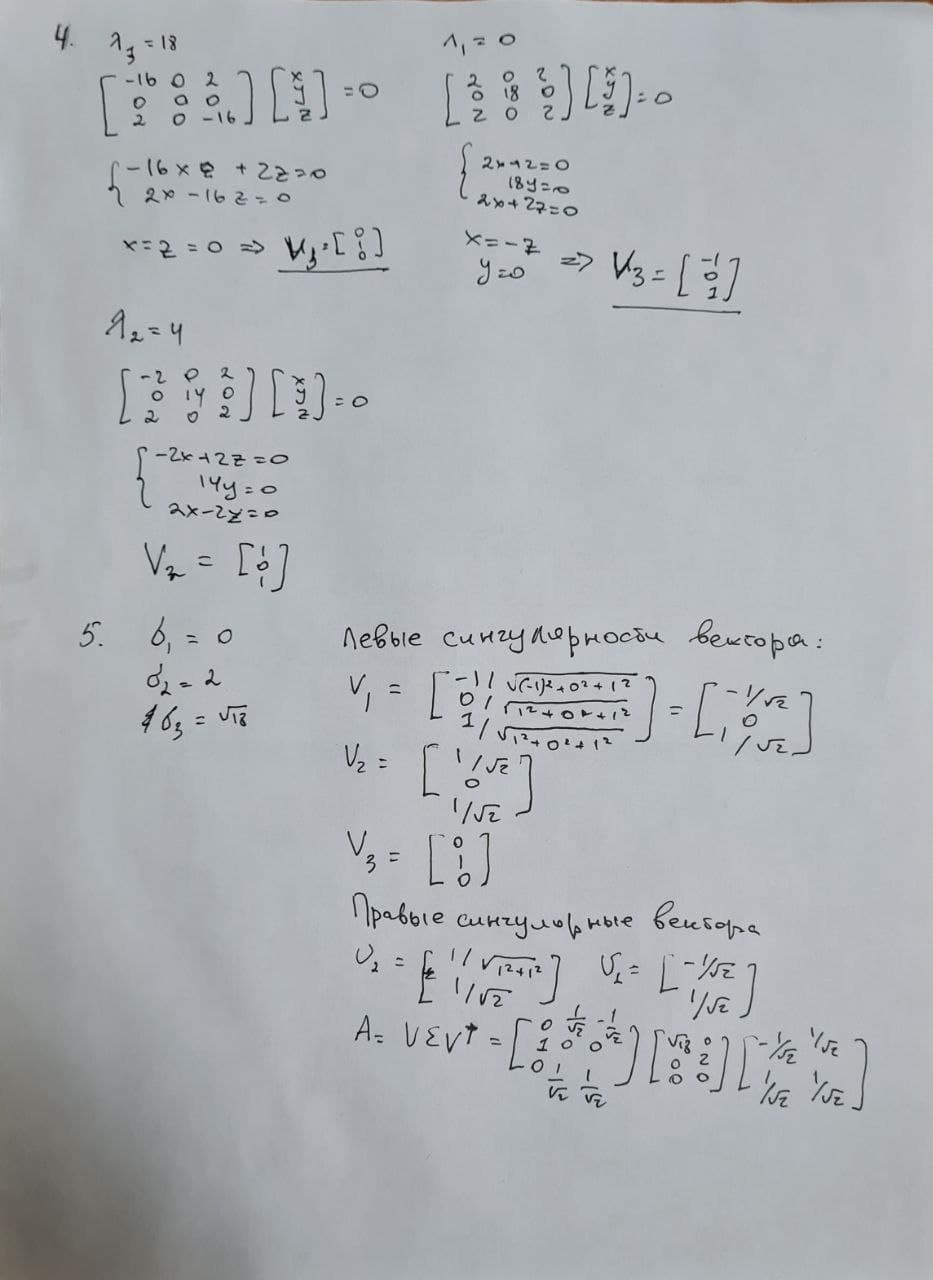 4. λ₃ = 18
[-16 0 2; 0 0 0; 2 0 -16] [x; y; z] = 0
{ -16x + 2z = 0
2x - 16z = 0
x = z = 0 => V₃ = [0; 1; 0]
λ₂ = 4
[-2 0 2; 0 14 0; 2 0 2] [x; y; z] = 0
{ -2x + 2z = 0
14y = 0
2x - 2z = 0
V₂ = [1; 0; 1]
λ₁ = 0
[2 0 2; 0 18 0; 2 0 2] [x; y; z] = 0
{ 2x + z = 0
18y = 0
2x + 2z = 0
x = -z
y = 0 => V₃ = [-1; 0; 1]
5. σ₁ = 0
σ₂ = 2
σ₃ = √18
Левые сингулярности вектора:
V₁ = [-1/√(-1)²+0²+1²; 0/√1²+0²+1²; 1/√1²+0²+1²] = [-1/√2; 0; 1/√2]
V₂ = [1/√2; 0; 1/√2]
V₃ = [0; 1; 0]
Правые сингулярные вектора
U₂ = [1/√1²+1²; 1/√2] U₁ = [-1/√2; 1/√2]
A = VΣV^T = [0 1/√2 -1/√2; 1 0 0; 0 1/√2 1/√2] [√18 0; 0 2; 0 0] [-1/√2 1/√2; 1/√2 1/√2]